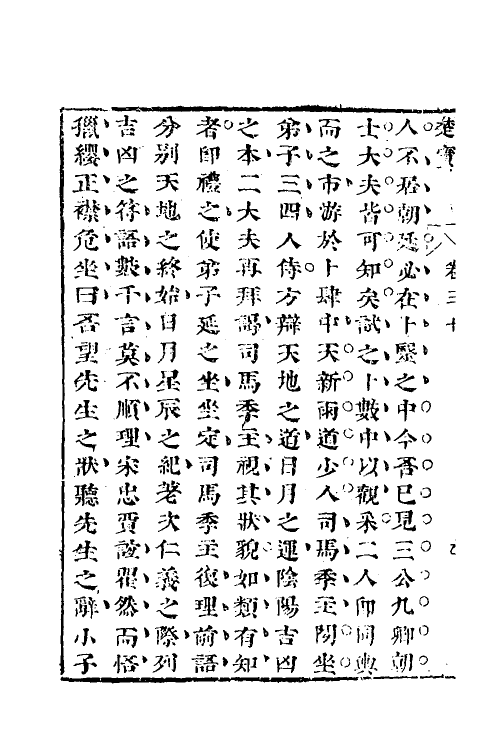 楚寶 卷三十
人不居朝廷必在卜醫之中今吾已見三公九卿朝
士大夫皆可知矣試之卜數中以觀采二人卽同輿
而之市游於卜肆中天新雨道少人司馬季主閒坐
弟子三四人侍方辯天地之道日月之運陰陽吉凶
之本二大夫再拜謁司馬季主視其狀貌如類有知
者卽禮之使弟子延之坐坐定司馬季主復理前語
分別天地之終始日月星辰之紀差次仁義之際列
吉凶之符語數千言莫不順理宋忠賈誼瞿然而悟
獵纓正襟危坐曰吾望先生之狀聽先生之辭小子